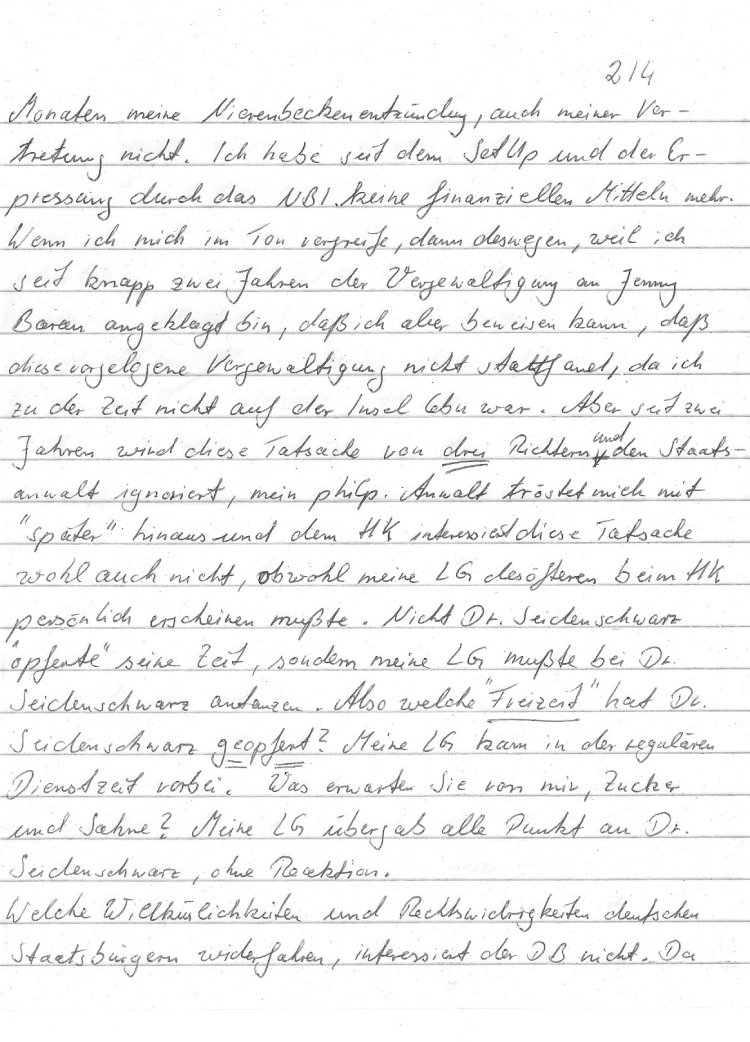 2/4
Monaten meine Nierenbeckenentzündung, auch meiner Ver-
tretung nicht. Ich habe seit dem SetUp und der Er-
pressung durch das NBI keine finanziellen Mitteln mehr.
Wenn ich mich im Ton vergreife, dann deswegen, weil ich
seit knapp zwei Jahren der Vergewaltigung an Jenny
Baran angeklagt bin, daß ich aber beweisen kann, daß
diese vorgelogene Vergewaltigung nicht stattfand, da ich
zu der Zeit nicht auf der Insel Cebu war. Aber seit zwei
Jahren wird diese Tatsache von drei Richtern und den Staats-
anwalt ignoriert, mein philp. Anwalt tröstet mich mit
"später" hinaus und dem HK interessiert diese Tatsache
wohl auch nicht, obwohl meine LG desöfteren beim HK
persönlich erscheinen mußte. Nicht Dr. Seidenschwarz
"opferte" seine Zeit, sondern meine LG mußte bei Dr.
Seidenschwarz antanzen. Also welche "Freizeit" hat Dr.
Seidenschwarz geopfert? Meine LG kam in der regulären
Dienstzeit vorbei. Was erwarten Sie von mir, Zucker
und Sahne? Meine LG übergab alle Punkt an Dr.
Seidenschwarz, ohne Reaktion.
Welche Willkürlichkeiten und Rechtswidrigkeiten deutschen
Staatsbürgern widerfahren, interessiert der DB nicht. Da